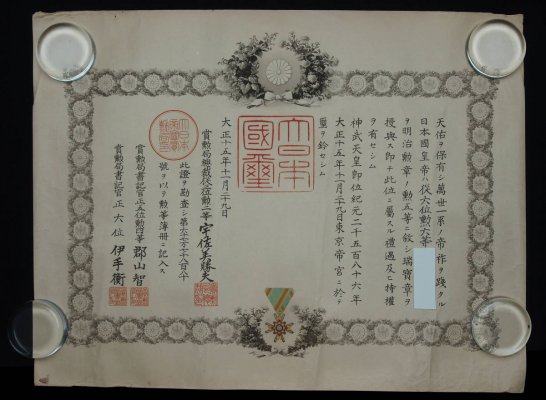 天佑ヲ保有シ萬世一系ノ帝祚ヲ踐タル
日本國皇帝ハ從六位勲六等
ヲ明治勲章ノ勲五等ニ敍シ瑞寶章ヲ
授與ス即チ此位ニ屬スル禮遇及ヒ特權
ヲ有セシム
神武天皇即位紀元二千五百八十六年
大正十五年十一月二十九日東京帝宮ニ於テ
璽ヲ鈐セシム
大日本國璽
大正十五年十一月二十九日
賞勲局總裁從二位勲一等宇佐美勝夫
此證ヲ勘査シ第六十七万七千八百八十
號ヲ以テ勲等簿冊ニ記入ス
賞勲局書記官正五位勲四等郡山智
賞勲局書記官正六位伊手衡